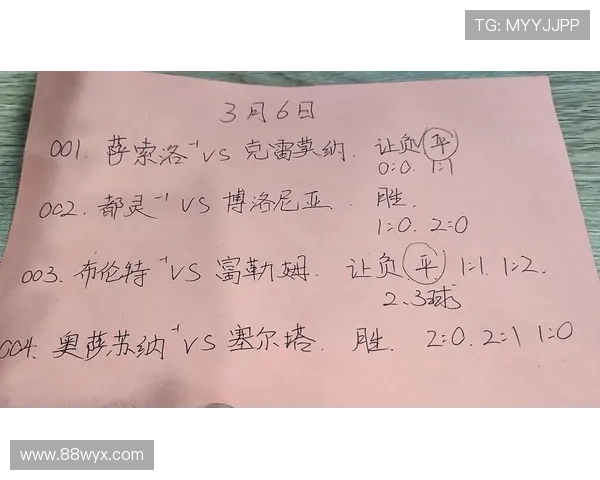 TG: MYYJJPP
3月6日
001. 萨索洛⁻¹ VS 克雷莫纳. 让负(平)
0:0. 1:1
002. 都灵⁻¹ VS 博洛尼亚. 胜.
1:0. 2:0
003. 布伦特⁻¹ VS 富勒姆. 让负(平) 1:1. 1:2.
2.3球
004. 奥萨苏纳⁻¹ VS 塞尔塔. 胜. 2:0. 2:1 1:0
www.88wyx.com